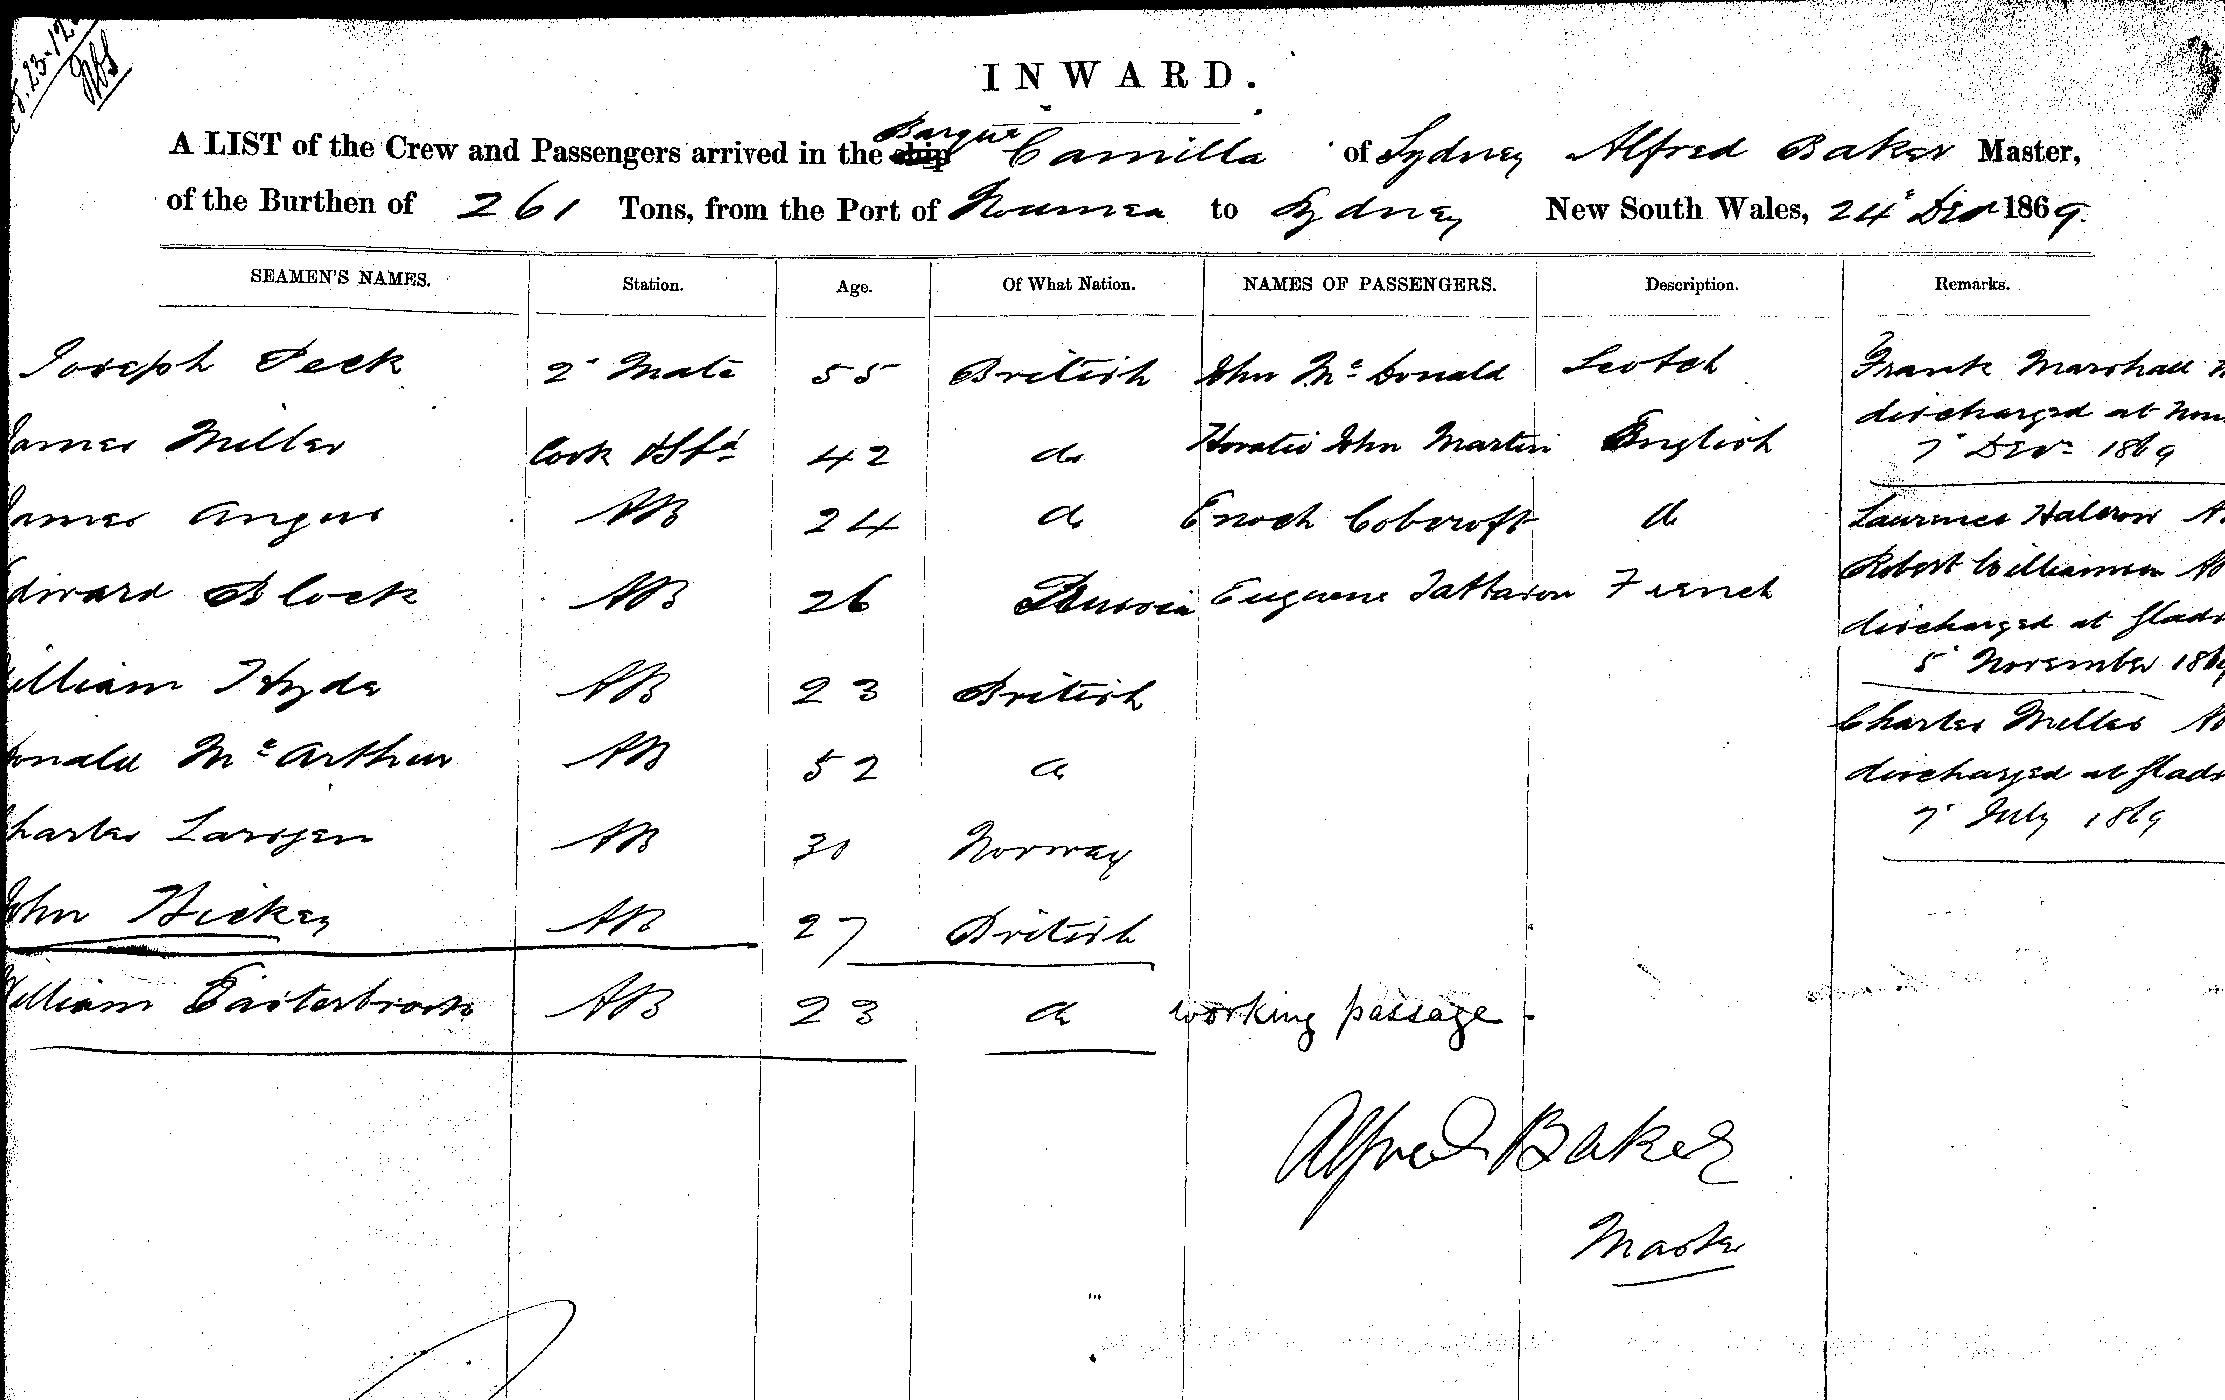 23-12
INWARD.
A LIST of the Crew and Passengers arrived in the ship Barque Camilla of Sydney Alfred Baker Master,
of the Burthen of 261 Tons, from the Port of Noumea to Sydney New South Wales, 24 Decr 1869.
SEAMEN'S NAMES. Station. Age. Of What Nation. NAMES OF PASSENGERS. Description. Remarks.
Joseph Peck 2d Mate 55 British John Mc Donald Scotch Frank Marshall
discharged at Nou
James Miller Cook & Std 42 do Horatio John Martin English 7 Decr 1869
James Angus AB 24 do Enoch Cobcroft do Laurence Halcrow A.
Robert Williamson AB
Edward Block AB 26 Russia Eugene French
discharged at Glads
5 November 1869
William Hyde AB 23 British
Charles Miller AB
Donald Mc Arthur AB 52 do discharged at Glads
7 July 1869
Charles Larsen AB 30 Norway
John Hickey AB 27 British
William Easterbrook AB 23 do working passage
Alfred Baker
Master